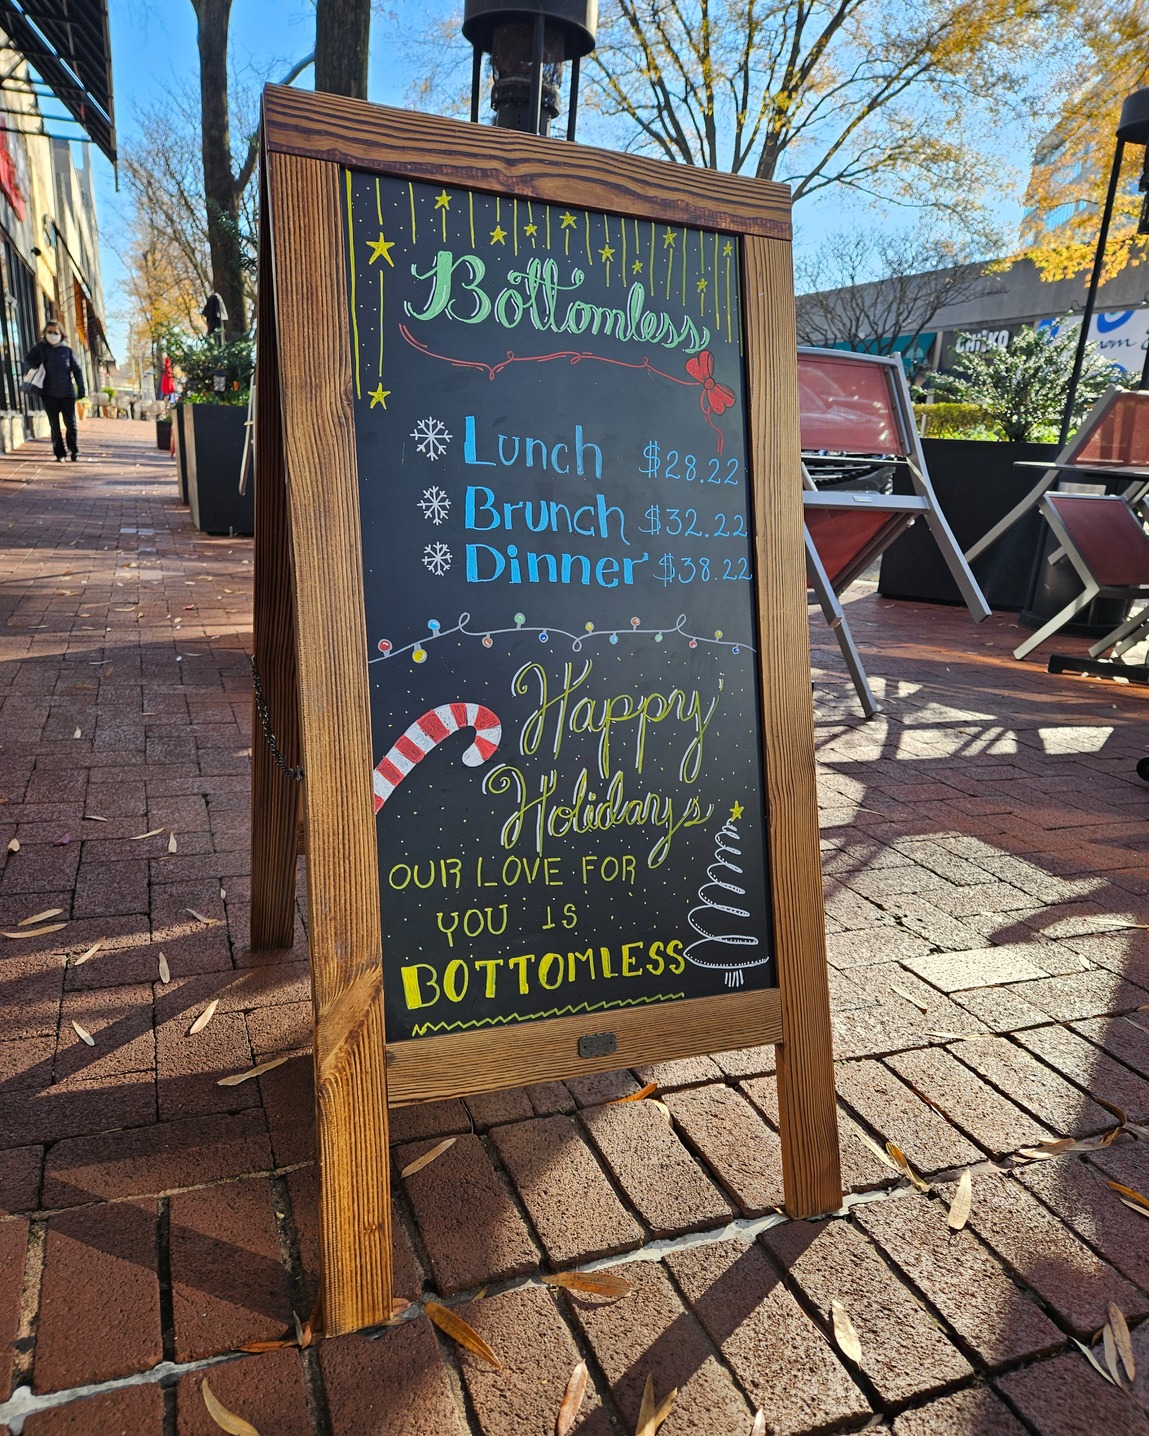 Bottomless
Lunch $28.22
Brunch $32.22
Dinner $38.22
Happy
Holidays
OUR LOVE FOR
YOU IS
BOTTOMLESS